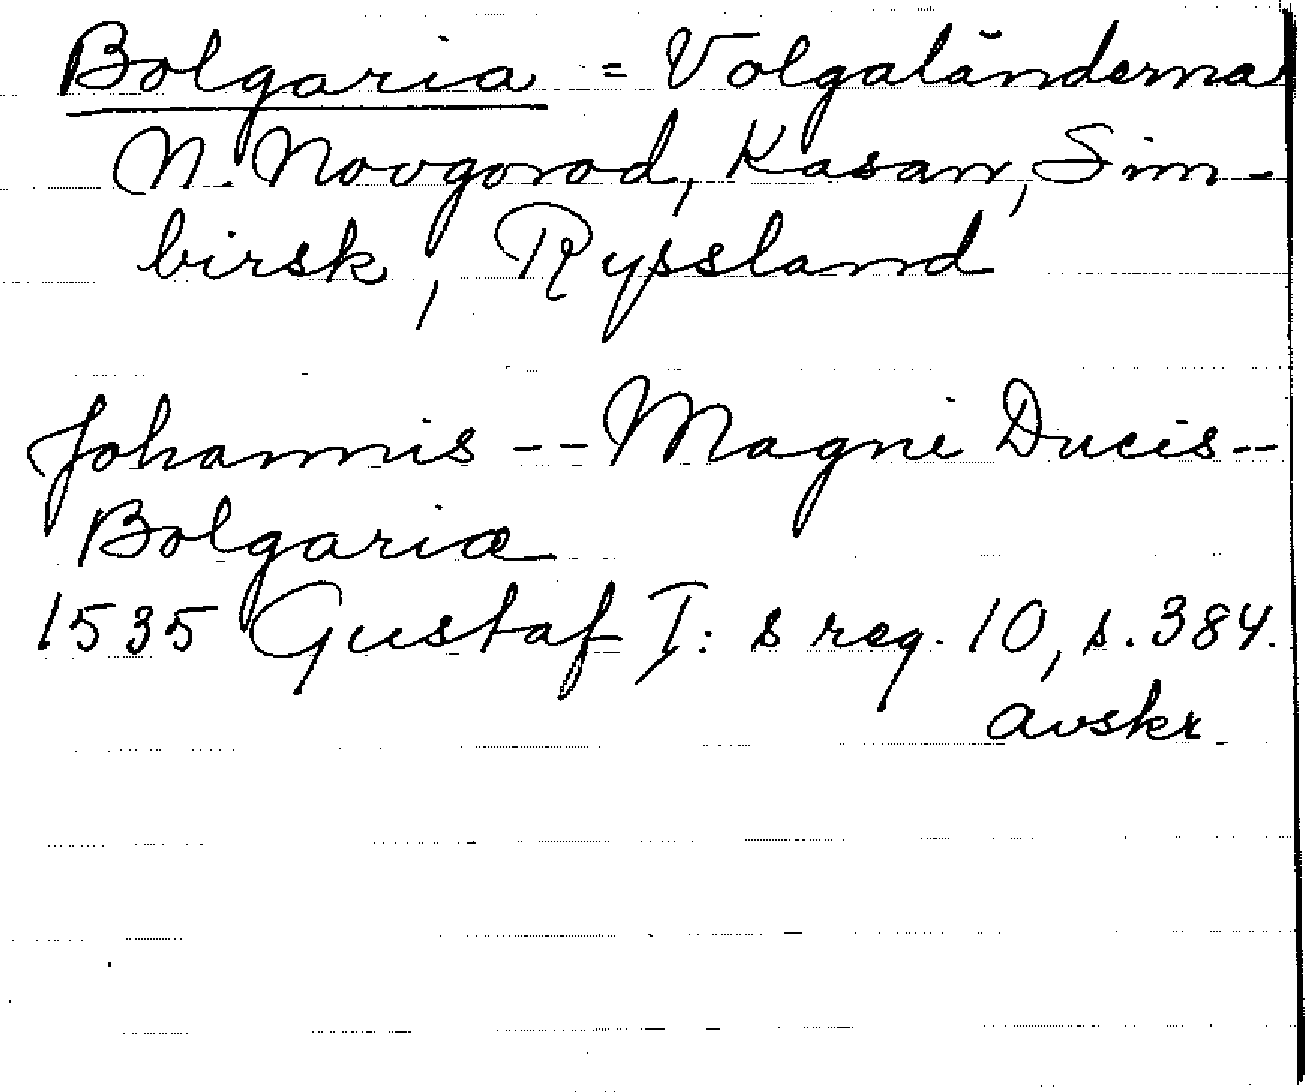 Bolgaria = Volgaländerna
N. Novgorod, Kasan, Sim-
birsk, Ryssland
Johannis -- Magni Ducis --
Bolgariæ
1535 Gustaf I: s reg. 10, s. 384.
avskr.